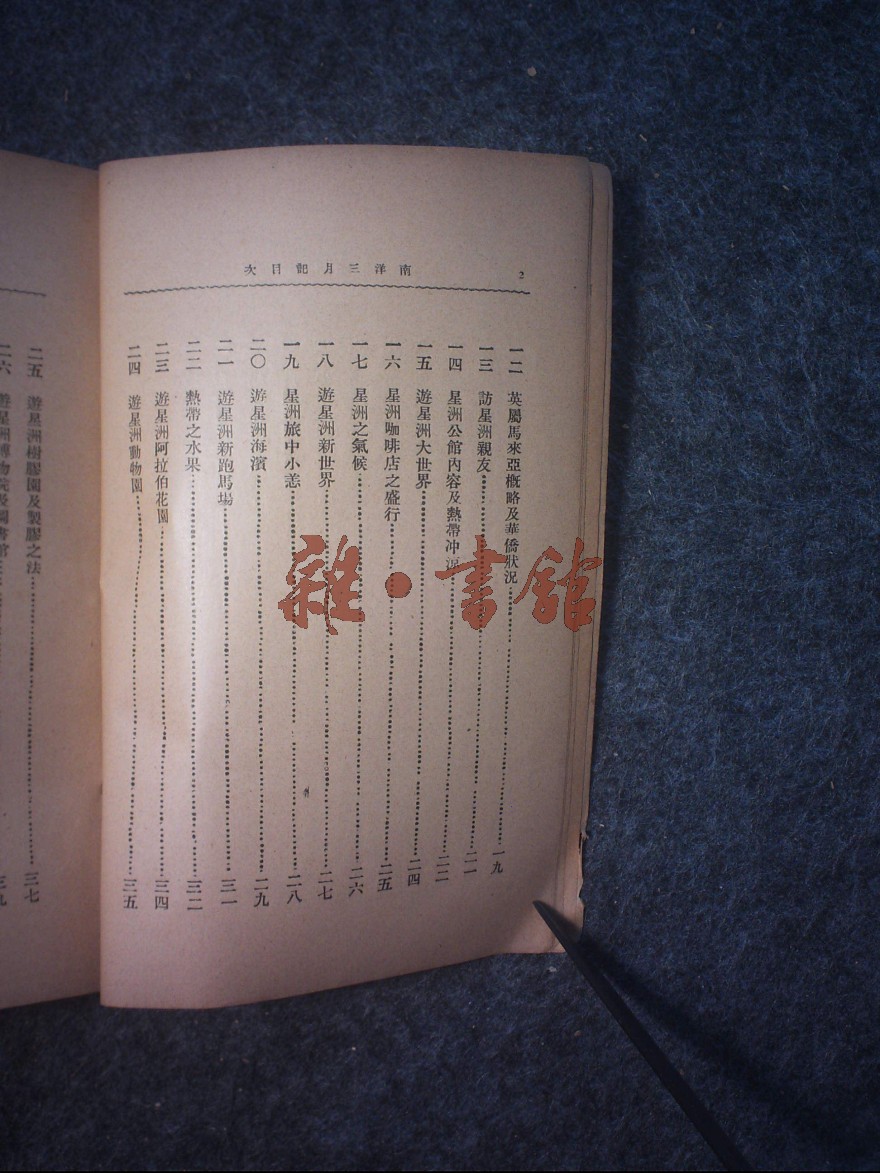 南洋三月記目次
2
一二 英屬馬來亞概略及華僑狀況 一九
一三 訪星洲親友 二一
一四 星洲公館內容及熱帶冲涼 二二
一五 遊星洲大世界 二四
一六 星洲咖啡店之盛行 二五
一七 星洲之氣候 二六
一八 遊星洲新世界 二七
一九 星洲旅中小恙 二八
二〇 遊星洲海濱 二九
二一 遊星洲新跑馬場 三一
二二 熱帶之水果 三二
二三 遊星洲阿拉伯花園 三四
二四 遊星洲動物園 三五
二五 遊星洲樹膠園及製膠之法 三七
二六 遊星洲博物院及圖書館 三九
雜·書館